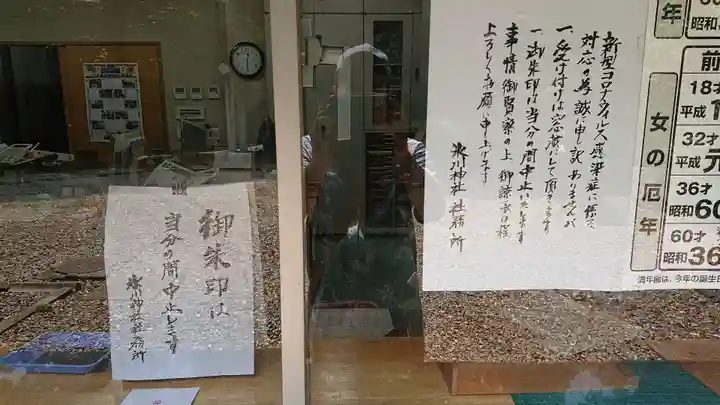 新型コロナウイルス感染症に係る
対応の為誠に申し訳ありませんが
一、受け付けは窓越しにて頂きます
一、御朱印は当分の間中止いたします
事情御賢察の上御諒承の程
上ろしくお願い申し上げます
氷川神社社務所
御朱印は
当分の間中止します
氷川神社社務所
年
昭和
女の厄年
前
18才
平成1
32才
平成元
36才
昭和60
60才
昭和36
満年齢は、今年の誕生日